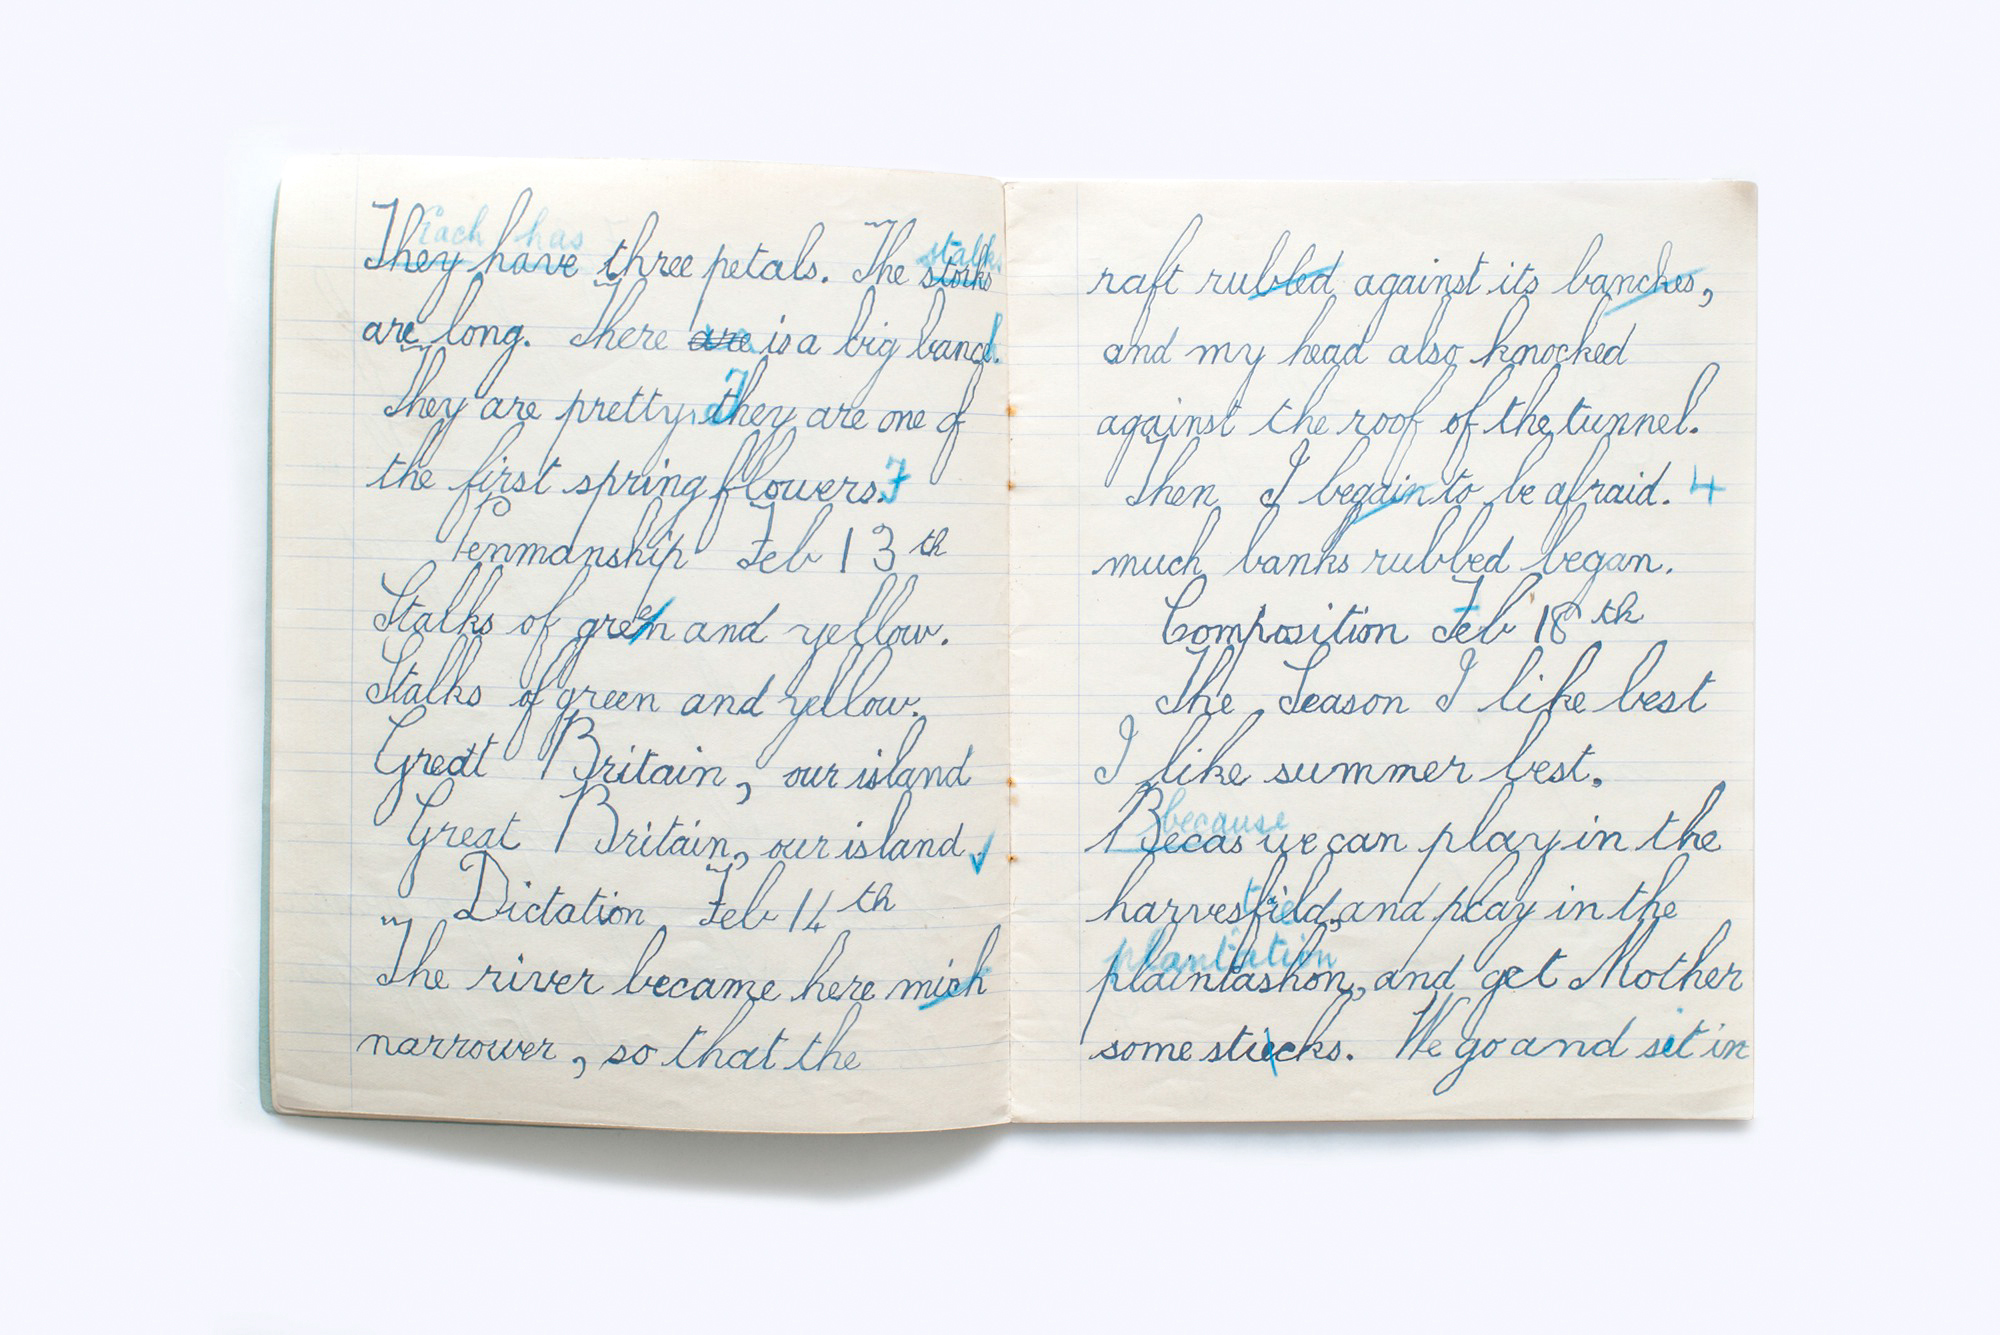 Each has
They have three petals. The storks stalks
are long. There are is a big bance.
They are pretty, They are one of
the first spring flowers. 7
Penmanship Feb 13th
Stalks of gren and yellow.
Stalks of green and yellow.
Great Britain, our island
Great Britain, our island.
Dictation Feb 14th
The river became here mich
narrower, so that the
raft rubled against its banches,
and my head also knocked
against the roof of the tunnel.
Then I begain to be afraid. 4
much banks rubbed began.
Composition Feb 18th
The Season I like best
I like summer best.
because
Becas we can play in the
harvesfield, and play in the
plantation
plaintashon, and get Mother
some stiecks. We go and sit in